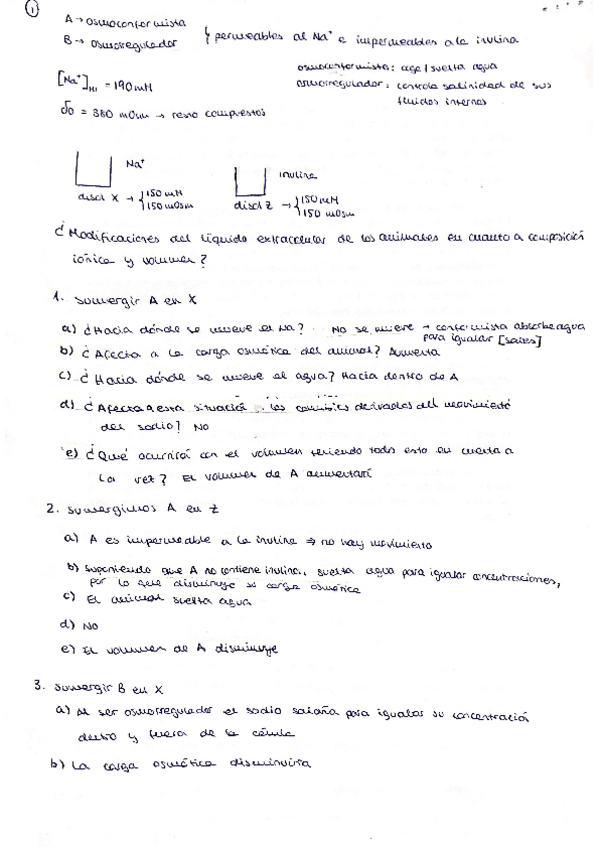 1
A → osmoconformista
B → osmorregulador } permeables al Na+ e impermeables a la inulina
osmoconformista: coge/suelta agua
osmorregulador: controla salinidad de sus
fluidos internos
[Na+] = 190 mM
= 380 mOsm → resto compuestos
Na+
disol X → { 150 mM
150 mOsm
inulina
disol Z → { 150 mM
150 mOsm
¿Modificaciones del líquido extracelular de los animales en cuanto a composición
iónica y volumen?
1. Sumergir A en X
a) ¿Hacia dónde se mueve el Na? No se mueve → conformista absorbe agua
para igualar [sales]
b) ¿Afecta a la carga osmótica del animal? Aumenta
c) ¿Hacia dónde se mueve el agua? Hacia dentro de A
d) ¿Afecta a esta situación los cambios derivados del movimiento
del sodio? NO
e) ¿Qué ocurrirá con el volumen teniendo todo esto en cuenta a
la vez? El volumen de A aumentará
2. Sumergimos A en Z
a) A es impermeable a la inulina ⇒ no hay movimiento
b) Suponiendo que A no contiene inulina, suelta agua para igualar concentraciones,
por lo que disminuye su carga osmótica
c) El animal suelta agua
d) NO
e) El volumen de A disminuye
3. Sumergir B en X
a) Al ser osmorregulador el sodio para igualar su concentración
dentro y fuera de la célula
b) La carga osmótica disminuiría